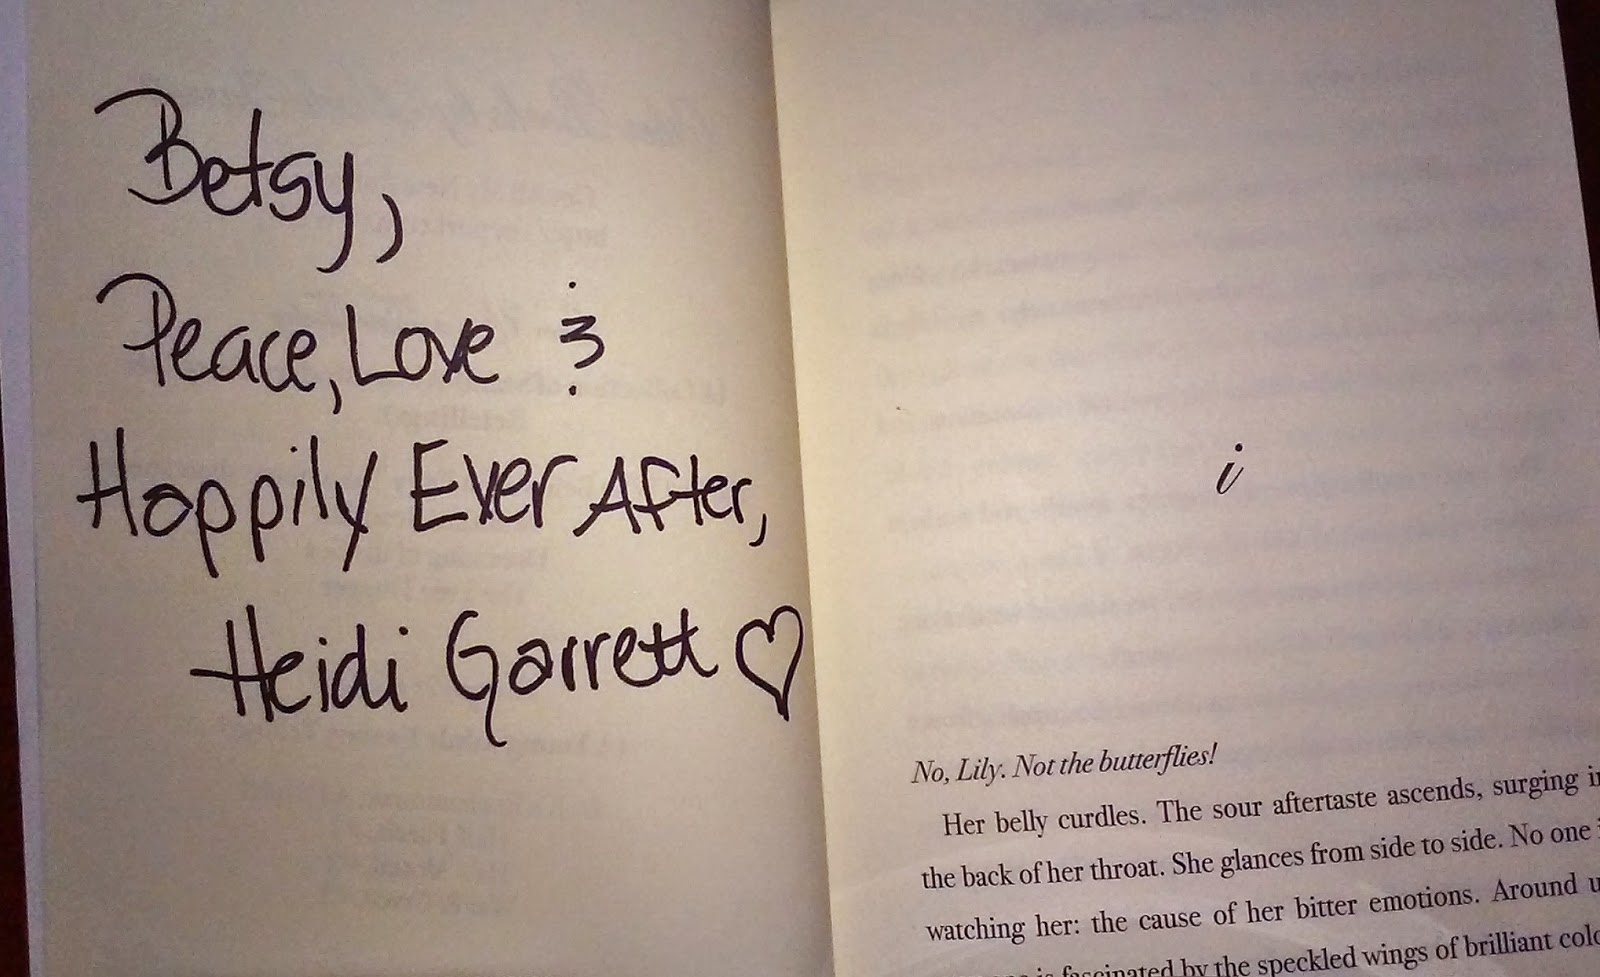 Betsy,
Peace, Love &
Happily Ever After,
Heidi Garrett ♡
i
No, Lily. Not the butterflies!
Her belly curdles. The sour aftertaste ascends, surging
the back of her throat. She glances from side to side. No one
watching her: the cause of her bitter emotions. Around
is fascinated by the speckled wings of brilliant